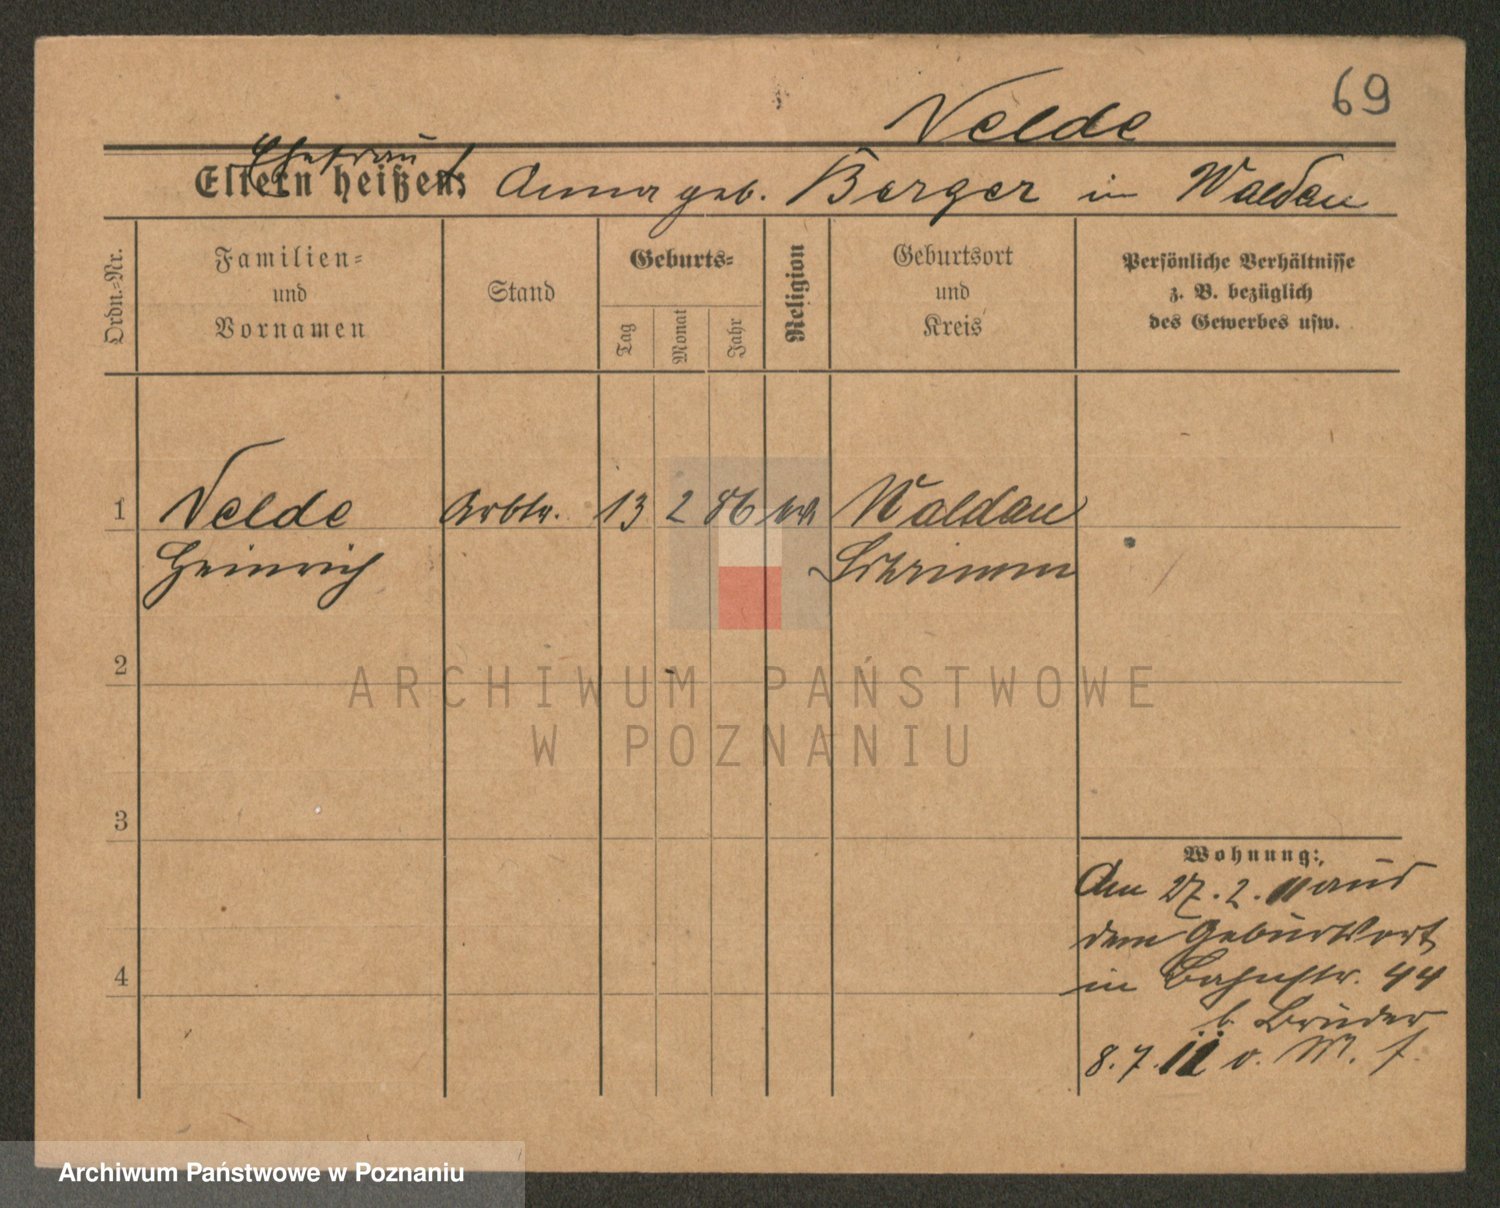 69
Velde
Ehefrau
Eltern heißen: Anna geb. Berger in Waldau
Ordn.-Nr.
Familien-
und
Vornamen
Stand
Geburts-
Tag
Monat
Jahr
Religion
Geburtsort
und
Kreis
Persönliche Verhältnisse
z. B. bezüglich
des Gewerbes usw.
1 Velde Arbtr. 13 2 86 Waldau
Heinrich Schrimm
2
ARCHIWUM PAŃSTWOWE
W POZNANIU
3
Wohnung:
Am 27. 2. 11 aus
dem Geburtsort
in Bahnstr. 44
b. Bruder
8. 7. 11 v. M.
4
Archiwum Państwowe w Poznaniu